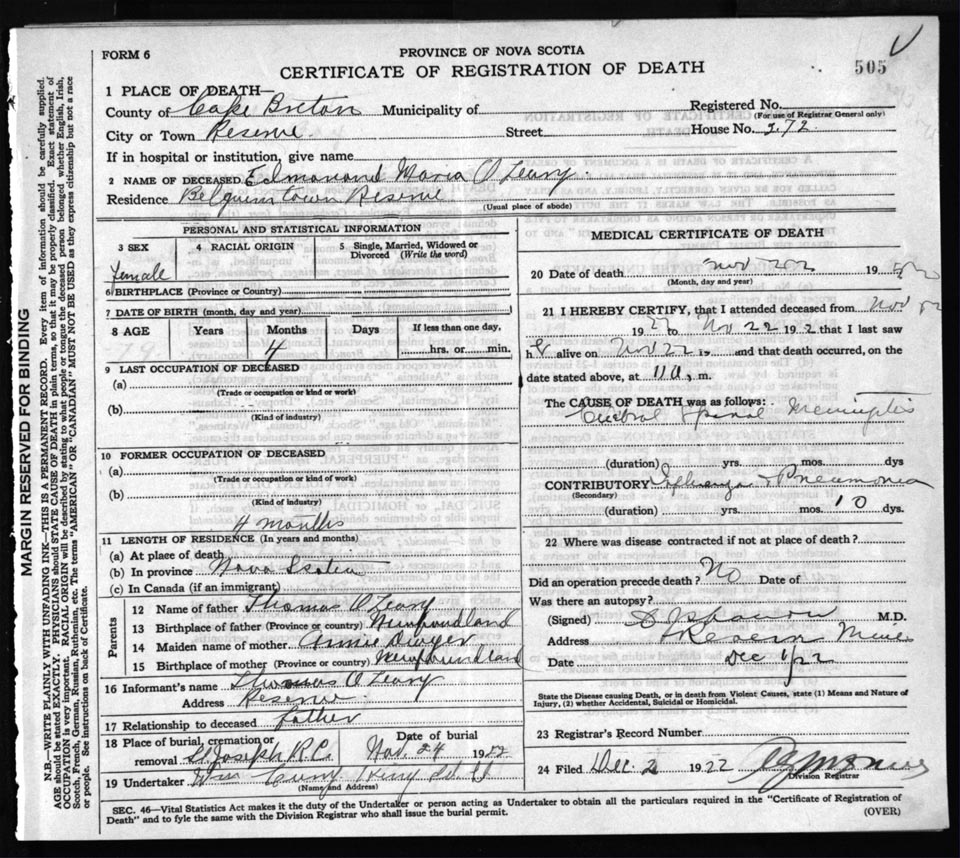 FORM 6
PROVINCE OF NOVA SCOTIA
CERTIFICATE OF REGISTRATION OF DEATH
505
1 PLACE OF DEATH—
County of Cape Breton Municipality of Registered No.
(For use of Registrar General only)
City or Town Reserve. Street House No. 272.
If in hospital or institution, give name
2 NAME OF DECEASED Edmanand Maria O'Leary.
Residence Belguim town Reserve
(Usual place of abode)
PERSONAL AND STATISTICAL INFORMATION
3 SEX 4 RACIAL ORIGIN 5 Single, Married, Widowed or Divorced (Write the word)
female
6 BIRTHPLACE (Province or Country)
7 DATE OF BIRTH (month, day and year)
8 AGE Years Months Days If less than one day,
4 hrs. or min.
9 LAST OCCUPATION OF DECEASED
(a)
(Trade or occupation or kind of work)
(b)
(Kind of industry)
10 FORMER OCCUPATION OF DECEASED
(a)
(Trade or occupation or kind of work)
(b)
(Kind of industry)
4 months
11 LENGTH OF RESIDENCE (In years and months)
(a) At place of death
(b) In province Nova Scotia
(c) In Canada (if an immigrant)
Parents
12 Name of father Thomas O'Leary
13 Birthplace of father (Province or country) Newfoundland
14 Maiden name of mother Annie Dwyer
15 Birthplace of mother (Province or country) Newfoundland
16 Informant's name Thomas O'Leary
Address Reserve
17 Relationship to deceased father
18 Place of burial, cremation or removal St Joseph R.C. Date of burial Nov. 24 19
19 Undertaker Wm Curry
(Name and Address)
MEDICAL CERTIFICATE OF DEATH
20 Date of death Nov 19
(Month, day and year)
21 I HEREBY CERTIFY, that I attended deceased from Nov
19 22 to Nov 22 19 2 that I last saw
h er alive on Nov 22 19 and that death occurred, on
date stated above, at 11 a. m.
The CAUSE OF DEATH was as follows:
Cerebral Spinal Meningitis
(duration) yrs. mos. dys
CONTRIBUTORY Influenza & Pneumonia
(Secondary)
(duration) yrs. mos. 10 dys.
22 Where was disease contracted if not at place of death?
Did an operation precede death? No Date of
Was there an autopsy?
(Signed) M.D.
Address Reserve Mines
Date Dec 1/22
State the Disease causing Death, or in death from Violent Causes, state (1) Means and Nature of Injury, (2) whether Accidental, Suicidal or Homicidal.
23 Registrar's Record Number
24 Filed Dec. 2 1922
Division Registrar
SEC. 46—Vital Statistics Act makes it the duty of the Undertaker or person acting as Undertaker to obtain all the particulars required in the "Certificate of Registration of
Death" and to fyle the same with the Division Registrar who shall issue the burial permit.
(OVER)
MARGIN RESERVED FOR BINDING
N.B.—WRITE PLAINLY WITH UNFADING INK—THIS IS A PERMANENT RECORD. Every item of information should be carefully supplied.
AGE should be stated EXACTLY. PHYSICIANS should STATE CAUSE OF DEATH in plain terms, so that it may be properly classified. Exact statement of
OCCUPATION is very important. RACIAL ORIGIN will be described by stating to what people or tongue the deceased person belonged whether English, Irish,
Scotch, French, German, Russian, Ruthenian, etc. The terms "AMERICAN" OR "CANADIAN" MUST NOT BE USED as they express citizenship but not a race
or people. See instructions on back of Certificate.